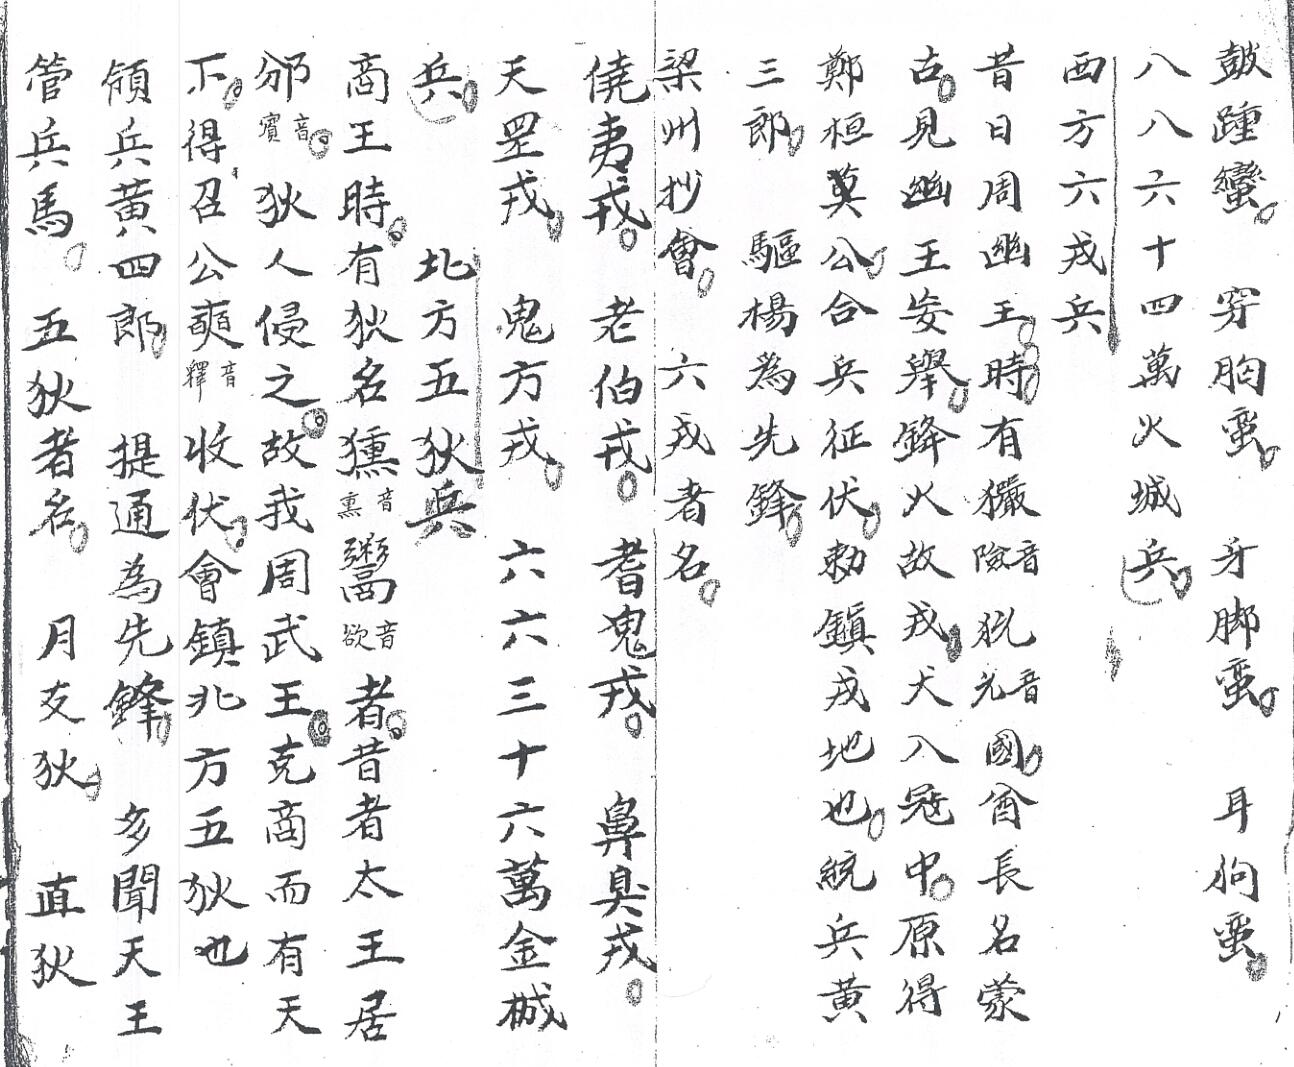 皷踵蠻 穿胸蛮 牙脚蛮 耳狗蛮
八八六十四萬火城兵
西方六戎兵
昔日周幽王時有玁音險狁音允國酋長名蒙
古見幽王妄舉鋒火故戎犬入冦中原得
鄭桓莫公合兵征伏勅鎮戎地也統兵黄
三郎 驅楊為先鋒
梁州抄會 六戎者名
僥夷戎 老伯戎 耆鬼戎 鼻臭戎
天罡戎 鬼方戎 六六三十六萬金械
兵 北方五狄兵
商王時有狄名獯音熏鬻音欲者昔者太王居
邠音賓狄人侵之故我周武王克商而有天
下得召公奭音釋收伏會鎮北方五狄也
領兵黄四郎 提通為先鋒 多聞天王
管兵馬 五狄者名 月支狄 直狄